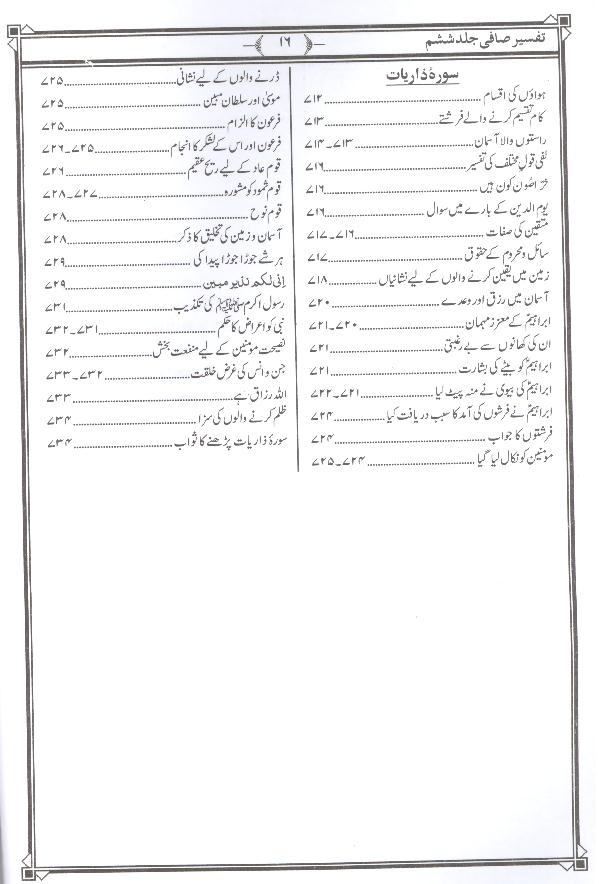 تفسیر صافی جلد ششم
۱۶
سورۂ ذاریات
ہواؤں کی اقسام ۷۱۲
کام تقسیم کرنے والے فرشتے ۷۱۳
راستوں والا آسمان ۷۱۳۔۷۱۴
لفی قولٍ مختلف کی تفسیر ۷۱۶
خرّاصُون کون ہیں ۷۱۶
یوم الدین کے بارے میں سوال ۷۱۶
متقین کی صفات ۷۱۶۔۷۱۷
سائل و محروم کے حقوق ۷۱۷
زمین میں یقین کرنے والوں کے لیے نشانیاں ۷۱۸
آسمان میں رزق اور وعدے ۷۲۰
ابراہیمؑ کے معزز مہمان ۷۲۰۔۷۲۱
ان کی کھانوں سے بے رغبتی ۷۲۱
ابراہیمؑ کو بیٹے کی بشارت ۷۲۱
ابراہیمؑ کی بیوی نے منہ پیٹ لیا ۷۲۱۔۷۲۲
ابراہیمؑ نے فرشتوں کی آمد کا سبب دریافت کیا ۷۲۴
فرشتوں کا جواب ۷۲۴
مومنین کو نکال لیا گیا ۷۲۴۔۷۲۵
ڈرنے والوں کے لیے نشانی ۷۲۵
موسیٰؑ اور سلطان مبین ۷۲۵
فرعون کا الزام ۷۲۵
فرعون اور اس کے لشکر کا انجام ۷۲۵۔۷۲۶
قوم عاد کے لیے ریح عقیم ۷۲۶
قوم ثمود کو مشورہ ۷۲۷۔۷۲۸
قوم نوح ۷۲۸
آسمان و زمین کی تخلیق کا ذکر ۷۲۸
ہر شے جوڑا جوڑا پیدا کی ۷۲۹
انی لکم نذیر مبین ۷۲۹
رسول اکرم ﷺ کی تکذیب ۷۳۱
نبی کو اعراض کا حکم ۷۳۱۔۷۳۲
نصیحت مومنین کے لیے منفعت بخش ۷۳۲
جن و انس کی غرض خلقت ۷۳۲۔۷۳۳
اللہ رزاق ہے ۷۳۳
ظلم کرنے والوں کی سزا ۷۳۴
سورۂ ذاریات پڑھنے کا ثواب ۷۳۴